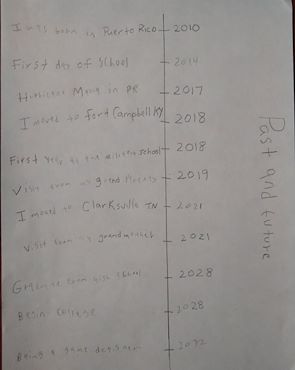 I was born in Puerto Rico 2010
First day of School 2014
Hurricane Maria in PR 2017
I moved to Fort Campbell KY 2018
First year at the school 2018
Visit from my grand 2019
I moved to Clarksville TN 2021
Visit from my grandmother 2021
Graduate from high school 2028
Begin college 2028
Being a game designer
Past and future